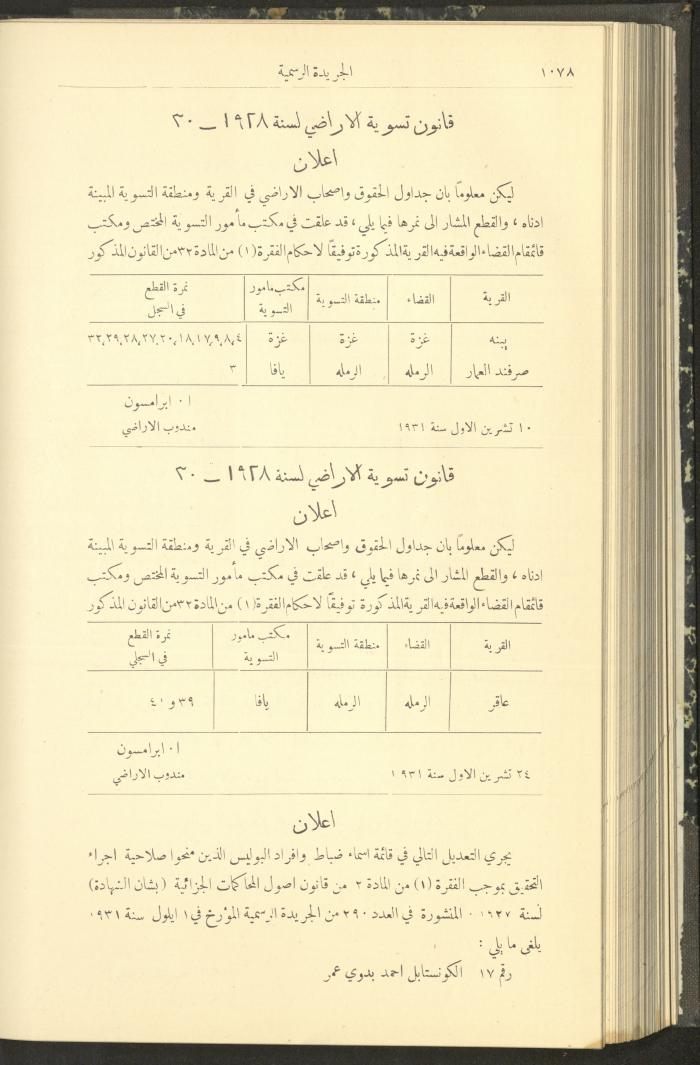 ١٠٧٨
الجريدة الرسمية
قانون تسوية الاراضي لسنة ١٩٢٨ – ٣٠
اعلان
ليكن معلوماً بان جداول الحقوق واصحاب الاراضي في القرية ومنطقة التسوية المبينة
ادناه ، والقطع المشار الى نمرها فيما يلي ، قد علقت في مكتب مأمور التسوية المختص ومكتب
قائمقام القضاء الواقعة فيه القرية المذكورة توفيقاً لاحكام الفقرة (١) من المادة ٣٢ من القانون المذكور
القرية | القضاء | منطقة التسوية | مكتب مامور التسوية | نمرة القطع في السجل
يبنه | غزة | غزة | غزة | ٤،٨،٩،١٧،١٨،٢٠،٢٧،٢٨،٢٩،٣٢
صرفند العمار | الرمله | الرمله | يافا | ٣
ا٠ ابرامسون
١٠ تشرين الاول سنة ١٩٣١
مندوب الاراضي
قانون تسوية الاراضي لسنة ١٩٢٨ – ٣٠
اعلان
ليكن معلوماً بان جداول الحقوق واصحاب الاراضي في القرية ومنطقة التسوية المبينة
ادناه ، والقطع المشار الى نمرها فيما يلي ، قد علقت في مكتب مأمور التسوية المختص ومكتب
قائمقام القضاء الواقعة فيه القرية المذكورة توفيقاً لاحكام الفقرة (١) من المادة ٣٢ من القانون المذكور
القرية | القضاء | منطقة التسوية | مكتب مامور التسوية | نمرة القطع في السجلي
عاقر | الرمله | الرمله | يافا | ٣٩ و ٤٠
ا٠ ابرامسون
٢٤ تشرين الاول سنة ١٩٣١
مندوب الاراضي
اعلان
يجري التعديل التالي في قائمة اسماء ضباط وافراد البوليس الذين منحوا صلاحية اجراء
التحقيق بموجب الفقرة (١) من المادة ٢ من قانون اصول المحاكمات الجزائية (بشان الشهادة)
لسنة ١٩٢٧ ٠ المنشورة في العدد ٢٩٠ من الجريدة الرسمية المؤرخ في ١ ايلول سنة ٩٣١ ١٠
يلغى ما يلي :
رقم ١٧ الكونستابل احمد بدوي عمر